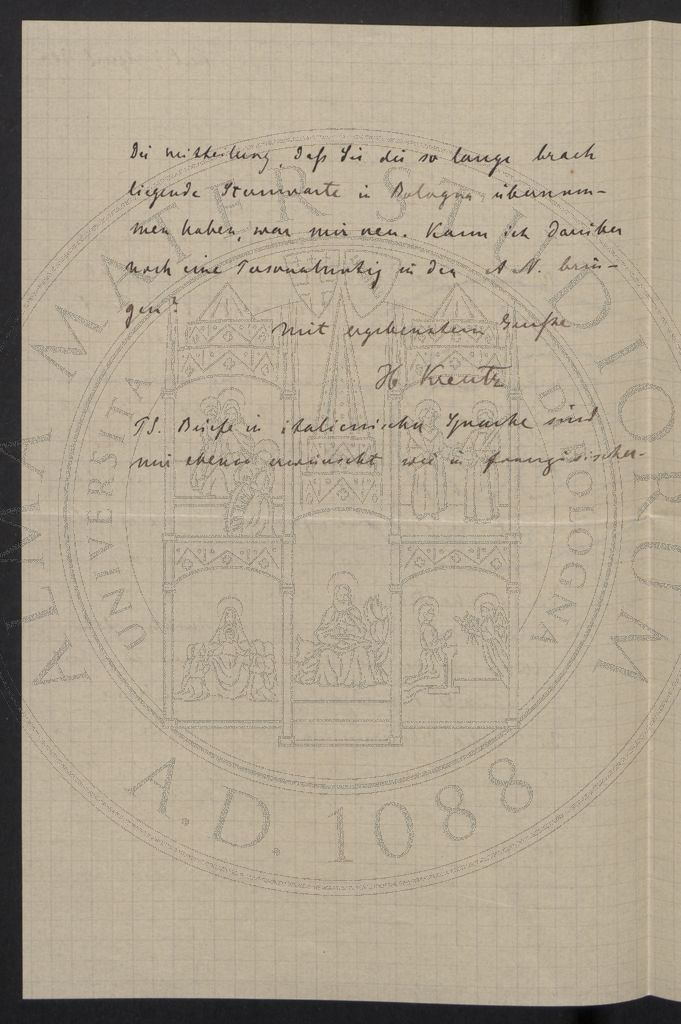 Die Mittheilung, daß Sie die so lange brach
liegende Sternwarte in Bologna übernom-
men haben, war mir neu. Kann ich darüber
noch eine Personalnotiz in den A. N. brin-
gen?
Mit ergebenstem Gruße
H. Kreutz
PS. Briefe in italienischer Sprache sind
mir ebenso erwünscht wie in französischer.
ALMA MATER STUDIORUM
UNIVERSITA DI BOLOGNA
A.D. 1088